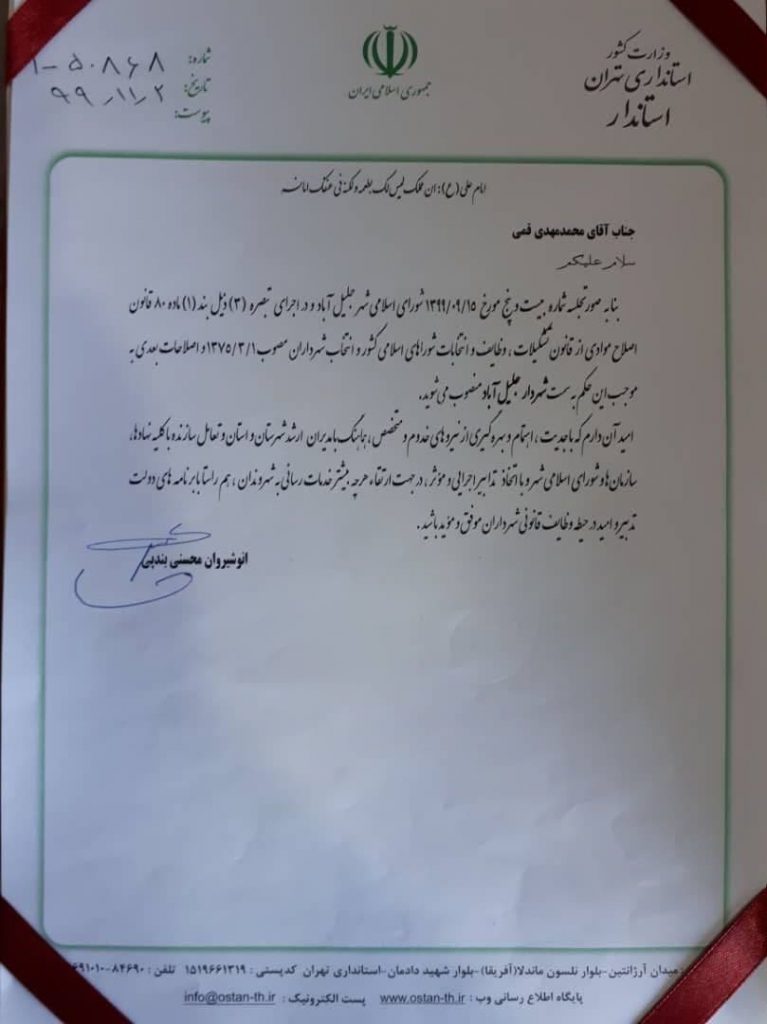 وزارت کشور
استانداری تهران
استاندار
جمهوری اسلامی ایران
شماره: ۵۰۸۶۸-۱
تاریخ: ۹۹،۱۱،۲
پیوست:
امام علی (ع): ان عملک لیس لک بطعمه ولکنه فی عنقک امانه
جناب آقای محمدمهدی قمی
سلام علیکم
بنا به صورتجلسه شماره بیست و پنج مورخ ۱۳۹۹/۰۹/۱۵ شورای اسلامی شهر جلیل آباد و در اجرای تبصره (۳) ذیل بند (۱) ماده ۸۰ قانون
اصلاح موادی از قانون تشکیلات، وظایف و انتخابات شوراهای اسلامی کشور و انتخاب شهرداران مصوب ۱۳۷۵/۳/۱ و اصلاحات بعدی به
موجب این حکم به سمت شهردار جلیل آباد منصوب می شوید.
امید آن دارم که با جدیت، اهتمام و بهره گیری از نیروهای خدوم و متخصص، هماهنگ با مدیران ارشد شهرستان و استان و تعامل سازنده با کلیه نهادها،
سازمان ها و شورای اسلامی شهر و با اتخاذ تدابیر اجرایی و مؤثر، در جهت ارتقاء هرچه بیشتر خدمات رسانی به شهروندان، هم راستا با برنامه های دولت
تدبیر و امید در حیطه وظایف قانونی شهرداران موفق و مؤید باشید.
انوشیروان محسنی بندپی
میدان آرژانتین-بلوار نلسون ماندلا(آفریقا)-بلوار شهید دادمان-استانداری تهران کدپستی: ۱۵۱۹۶۶۱۳۱۹ تلفن: ۸۴۶۹۰-
پایگاه اطلاع رسانی وب: www.ostan-th.ir پست الکترونیک: info@ostan-th.ir